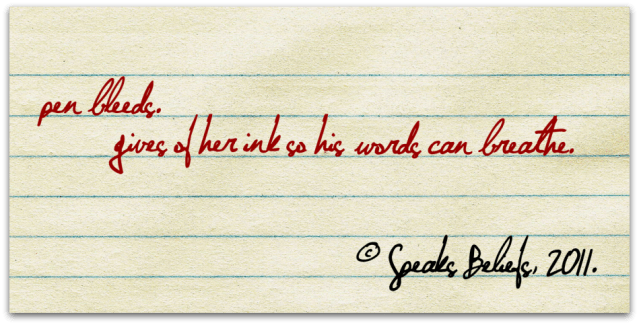 pen bleeds.
gives of her ink so his words can breathe.
© Speaks Beliefs, 2011.